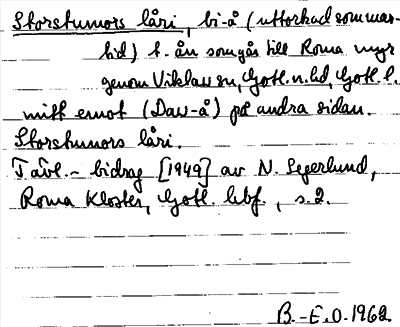 Storstumors låri, bi-å (uttorkad sommar-
tid) t. ån som gås till Roma myr
genom Viklau sn, Gotl. n. hd, Gotl. l.
mitt emot (Daw-å) på andra sidan.
Storstumors låri.
Tävl.- bidrag [1949] av N. Segerlund,
Roma Kloster, Gotl. hbf., s. 2.
B.-E.O. 1962